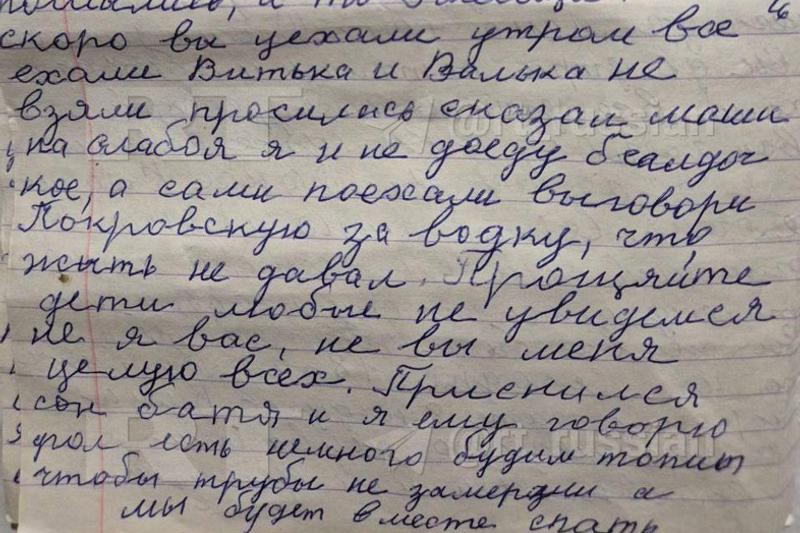 скоро вы уехали утром все
ехали Витька и Валька не
взяли просилась сказал маши
на слабоя я и не доеду
кое, а сами поехали выговори
Покровскую за водку, что
жыть не давал. Прощяйте
дети любые не увидемся
не я вас, не вы меня
целую всех. Приснился
сон батя и я ему говорю
есть немного будим топит
чтобы трубы не замерзни а
мы будет вместе спать
@rt.russian
@rt.russian